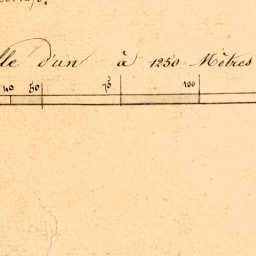 lle d'un à 1250 Mètres
40 50 75 100